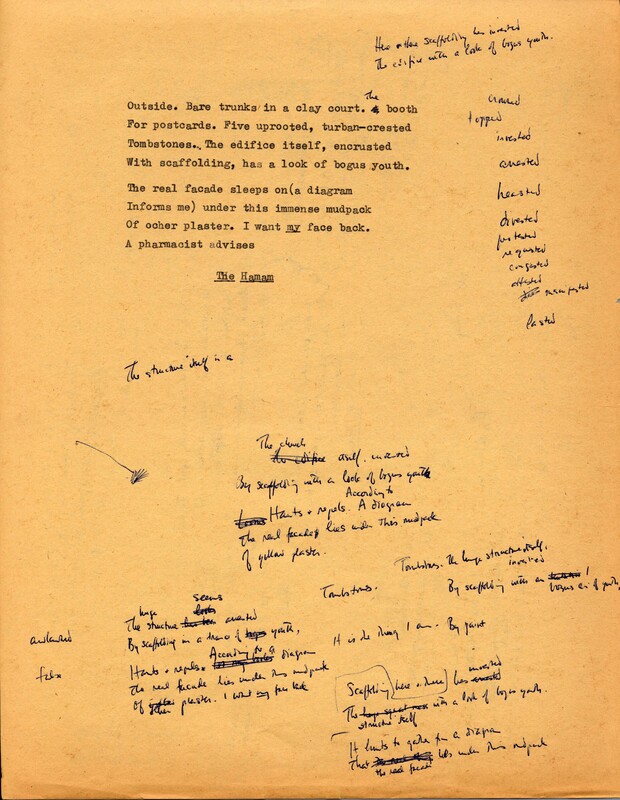 Here + there scaffolding has invested
The edifice with a look of bogus youth.
Outside. Bare trunks in a clay court. The booth
For postcards. Five uprooted, turban-crested
Tombstones. The edifice itself, encrusted
With scaffolding, has a look of bogus youth.
The real facade sleeps on(a diagram
Informs me) under this immense mudpack
Of ocher plaster. I want my face back.
A pharmacist advises
The Hamam
crowned
topped
invested
arrested
breasted
divested
protested
requested
congested
attested
manifested
lasted
The structure itself is a
The church
the edifice itself, invested
By scaffolding with a look of bogus youth
Haunts + repels. According to A diagram
The real facade lies under this mudpack
Of yellow plaster.
Tombstones. The huge structure itself,
invested
By scaffolding with an
bogus air of youth,
Tombstones.
It is the thing I am. By
huge seems
The structure arrested
By scaffolding in a trance of youth,
Haunts + repels. According to a diagram
The real facade lies under this mudpack
Of ocher plaster. I want my face back
awkward
false
Scaffolding (here + there) has invested
The with a look of bogus youth.
structure itself
It hurts to gather from a diagram
That lies under this mudpack
the real facade